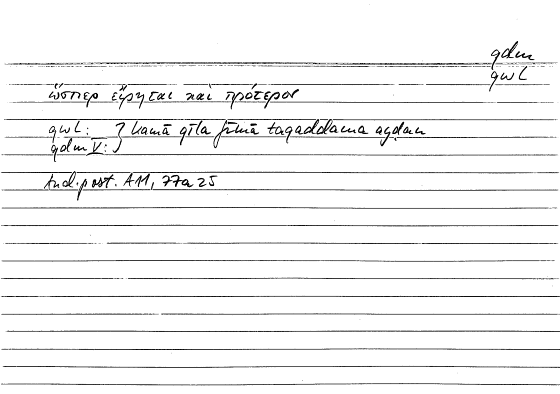 qdm
qwl
ὥσπερ εἴρηται καὶ πρότερον
qwl: } kamā qīla fīmā taqaddama ayḍan
qdm V:
And. post. A11, 77a25